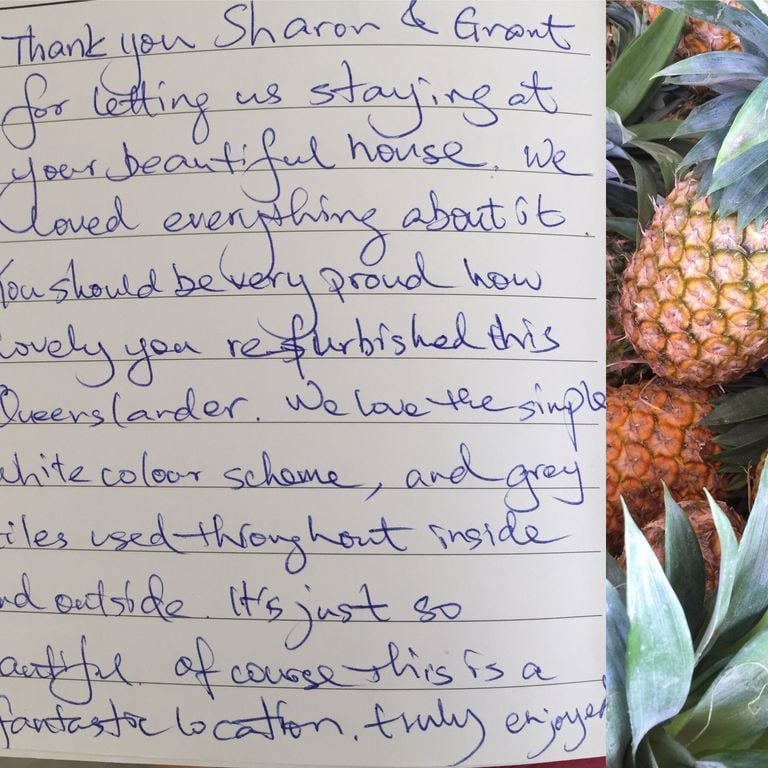 Thank you Sharon & Grant
for letting us staying at
your beautiful house. We
loved everything about it.
You should be very proud how
lovely you refurbished this
Queenslander. We love the simple
white colour scheme, and grey
tiles used throughout inside
and outside. It's just so
beautiful. Of course this is a
fantastic location. truly enjoyed